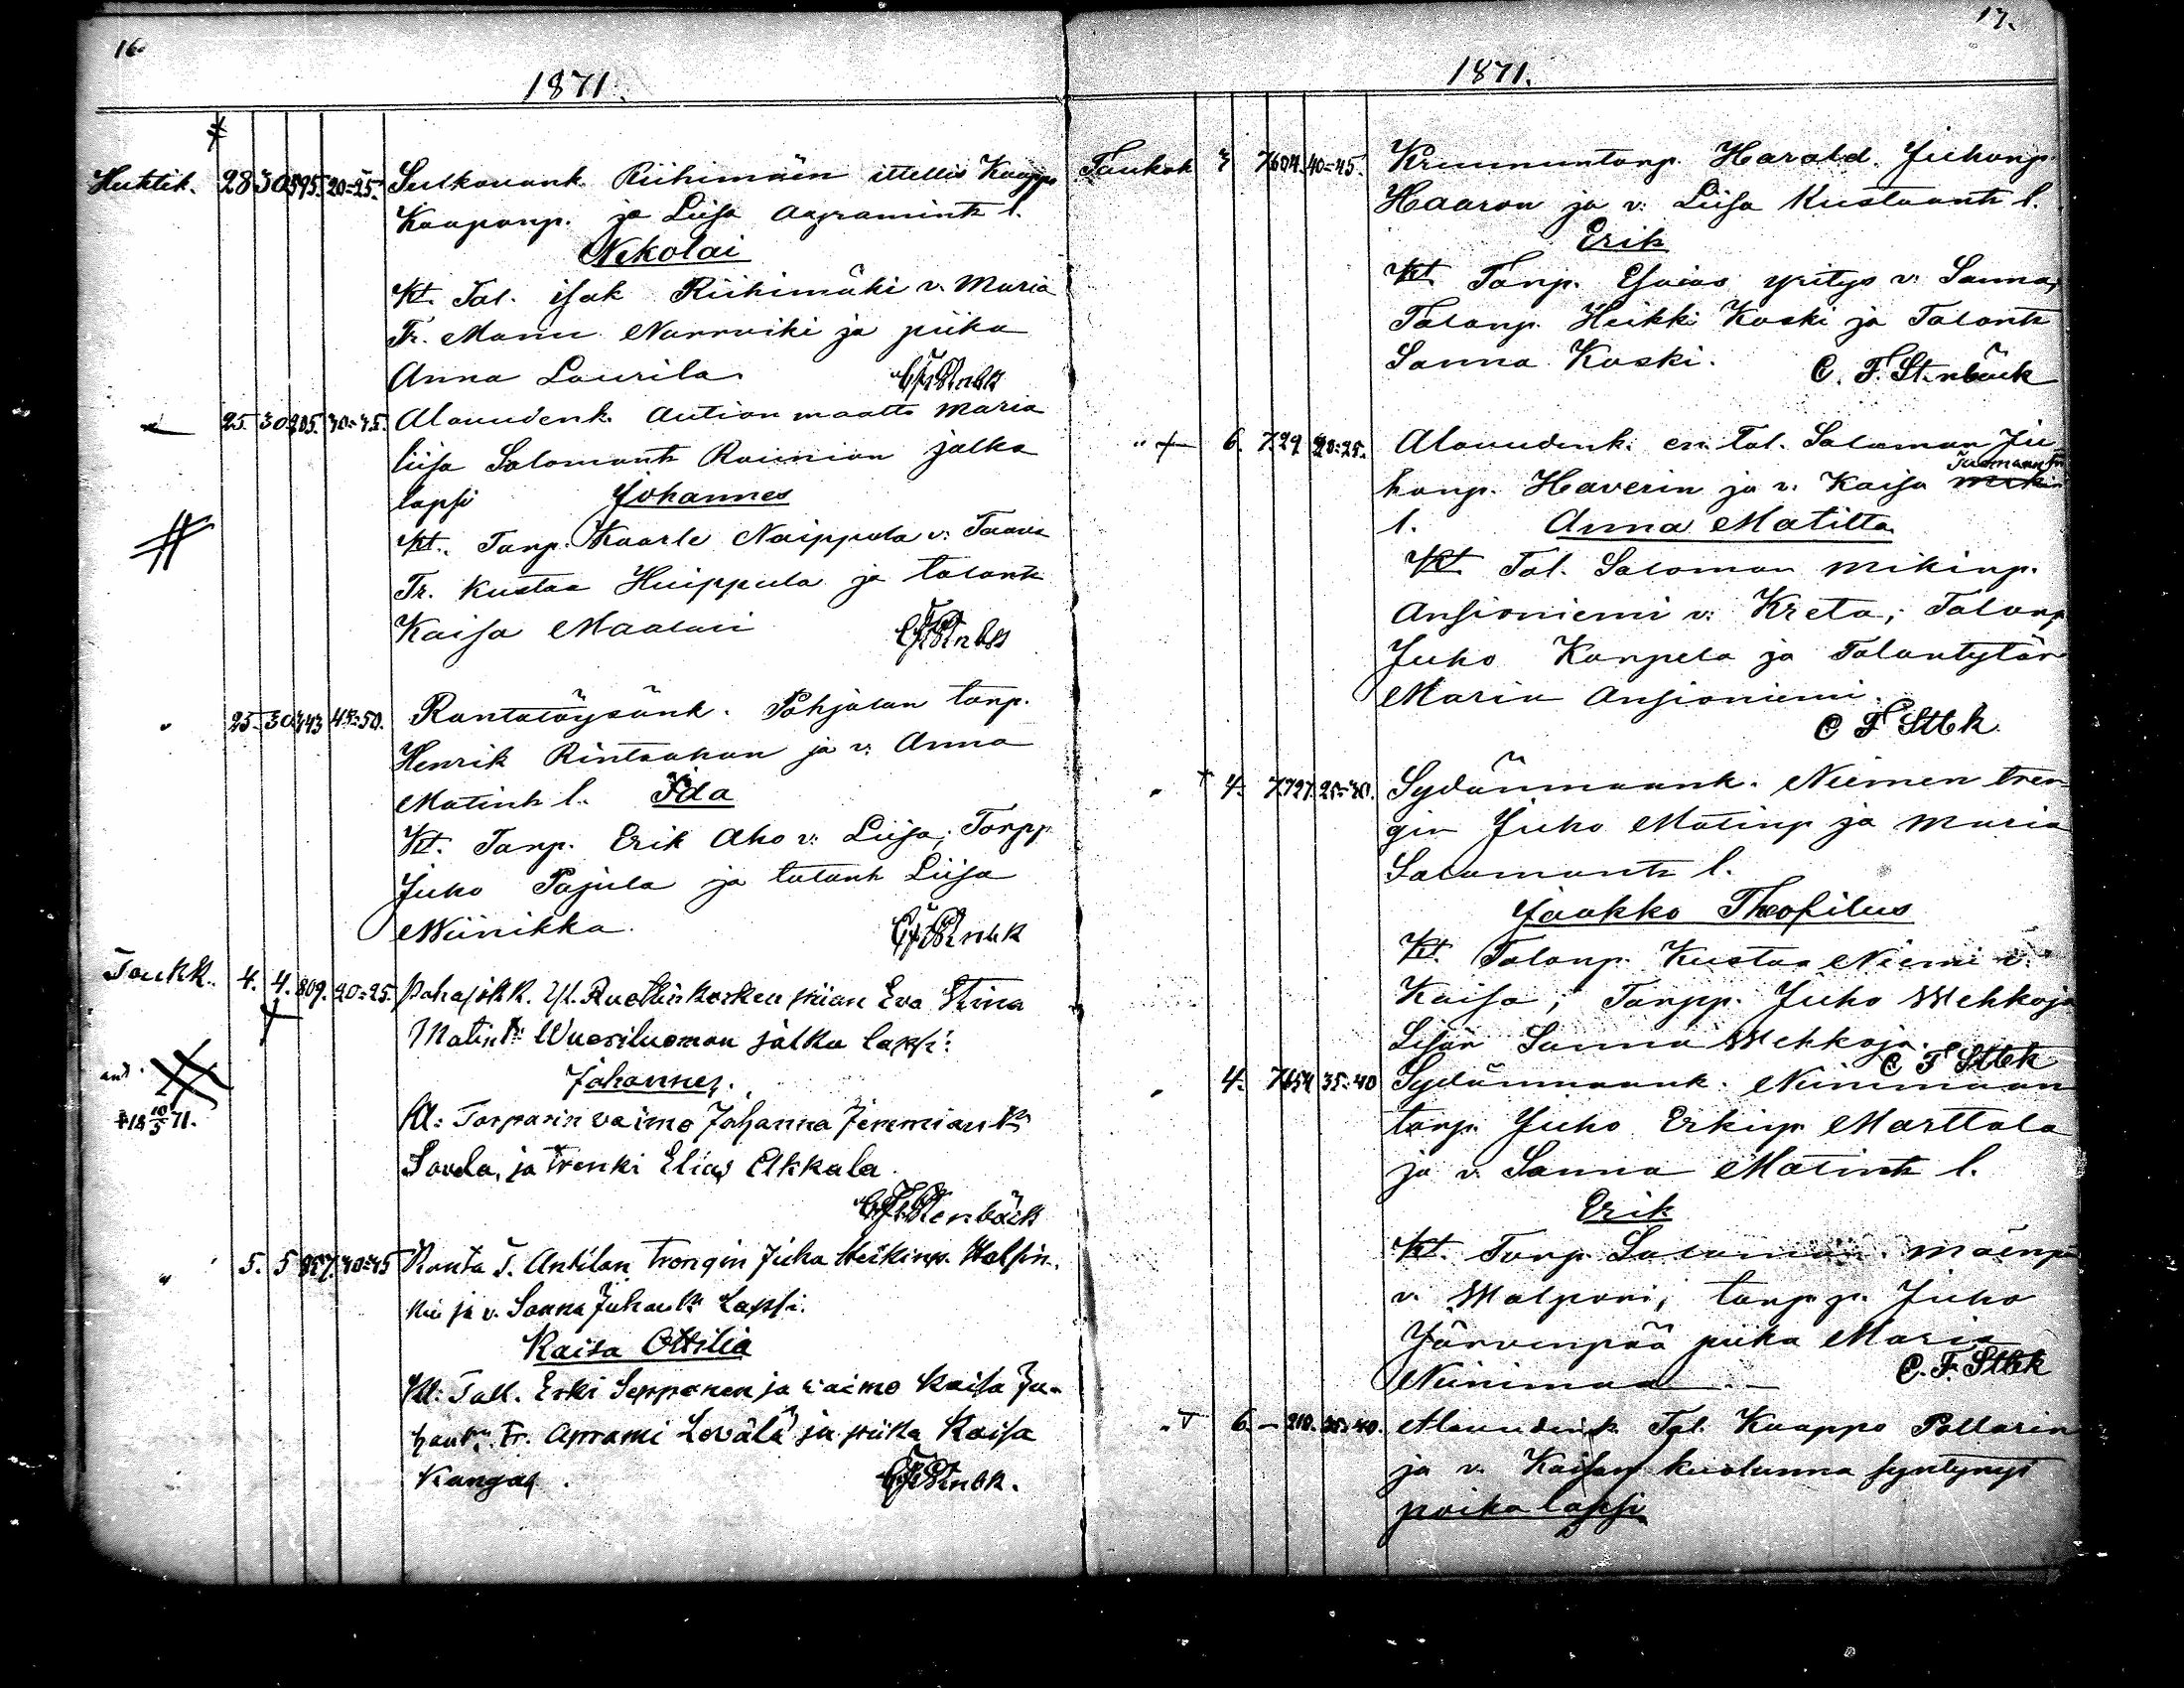 16.
1871.
Huhtik. 28 30 595. 20=25. Sulkavank. Riihimäen ittellis Kaappo
Kaaponp. ja Liisa Aapramintr l.
Nikolai
Kt. Tal. Isak Riihimäki v. Maria
Tr. Manu Narroiki ja piika
Anna Laurila
25. 30 205. 40=45. Alavudenk. Aution maalta Maria
Liisa Salomontr Raunion jalka
lapsi Johannes
Kt. Torp. Kaarle Naippula v: Taava
Tr. Kustaa Huippula ja talontr
Kaisa Maalari
" 25. 30 443 45=50. Rantatöysänk. Pohjalan torp.
Henrik Rintaahon ja v: Anna
Matintr l. Ida
Kt. Torp. Erik Aho v: Liisa; Torpp
Juho Pajula ja talontr Liisa
Niinikka.
Toukk. 4. 4. 809. 20=25. Pahajokk. Yl. Ruottinkosken piian Eva Stina
Matintr Wuoriluoman jalka lapsi:
Johannes.
Kt: Torparin vaimo Johanna Jeremiantr
Savola, ja trenki Elias Akkala.
C F Stenbäck
" 5. 5 857. 40=45 Ranta T. Anttilan trengin Juha Heikinp.
ja v. Sanna Juhantr Lapsi.
Kaisa Ottilia
Kt: Tall. Erki Seppanen ja vaimo Kaisa Ju-
hantr: Tr. Aprami Lovälä ja piika Kaisa
Kangas.
17.
1871.
Toukok 3 7 604. 40=45. Kruununtorp. Harald. Juhonp
Haaron ja v: Liisa Kustaantr l.
Erik
Kt. Torp. Esaias Yritys v: Sanna,
Talonp. Heikki Koski ja Talontr
Sanna Koski. C. F. Stenbäck
" 6. 7 29 20=25. Alavudenk. en. Tal. Salomon Ju
honp. Haverin ja v. Kaisa
l. Anna Matilta
Kt. Tal. Salomon Mikinp.
Ansioniemi v: Kreta; Talonp
Juho Kanpela ja Talontytär
Maria Ansioniemi.
C F Stbk.
" 4. 7 727. 25=30. Sydänmaank. Niemen tren
gin Juho Matinp ja Maria
Salomontr l.
Jaakko Theofilus
Kt. Talonp. Kustaa Niemi v.
Kaisa; Torpp. Juho Wehkoja
Lisän Sanna Wehkoja.
C F Stbk
" 4. 7 654 35=40 Sydänmaank. Niinimaan
torp. Juho Erkinp. Marttala
ja v. Sanna Matintr l.
Erik
Kt. Torp. Salomon Mäenp
v. Walpori; torpp. Juho
Järvenpää piika Maria
Niinimaa. C. F. Stbk
" 6. – 210. 35=40. Alavudenk. Tal. Kaappo Pollarin
ja v. Kaisan kuolluna syntynyt
poika lapsi